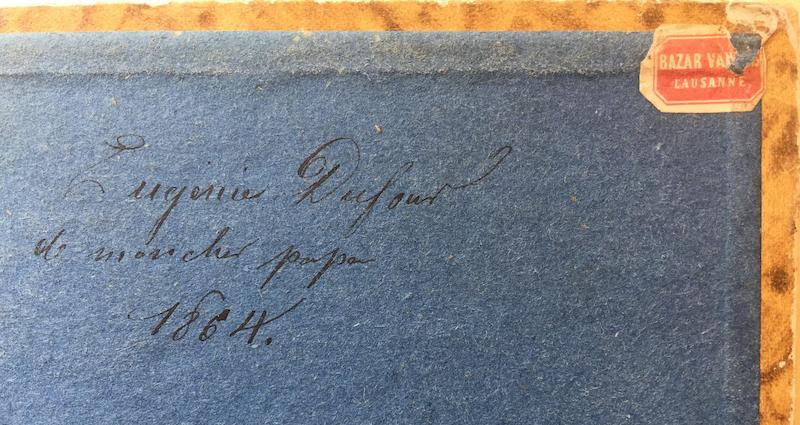 BAZAR
LAUSANNE
Eugénie Dufour
de mon cher papa
1864.